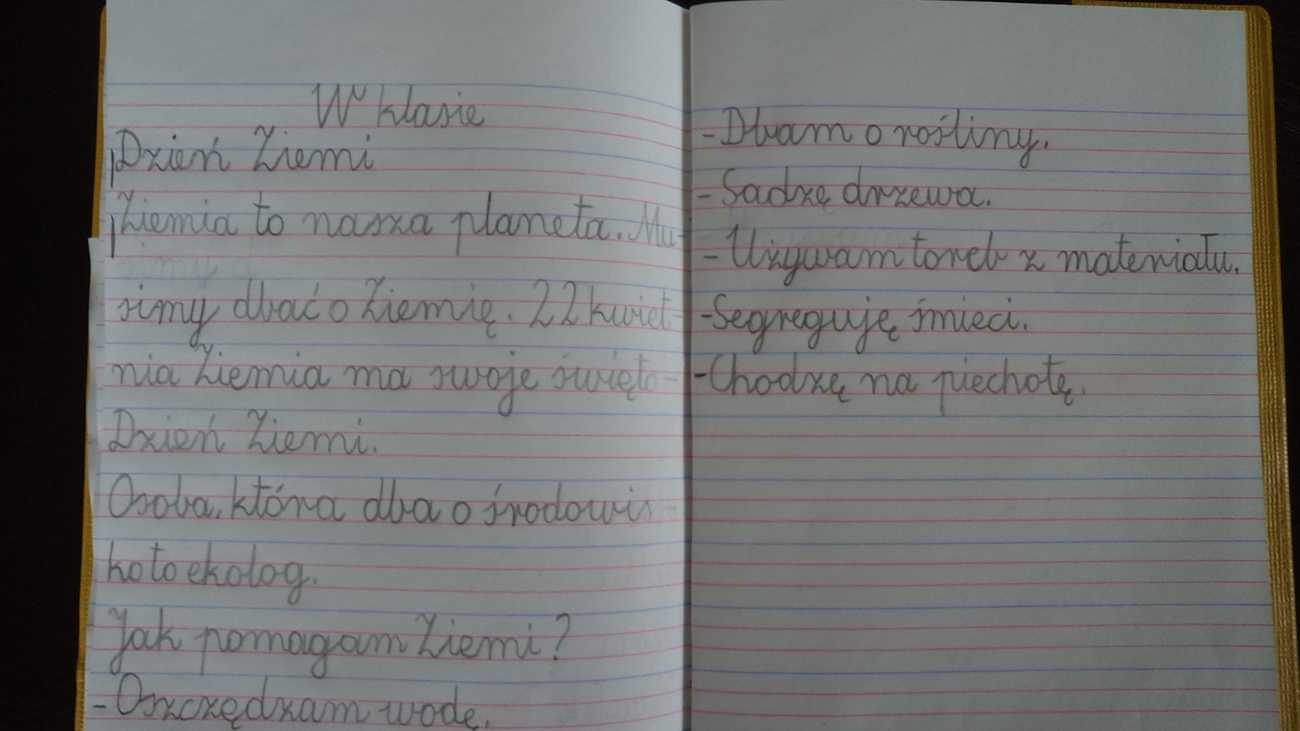 W klasie
Dzień Ziemi
Ziemia to nasza planeta. Mu-
simy dbać o Ziemię. 22 kwiet-
nia Ziemia ma swoje święto-
Dzień Ziemi.
Osoba, która dba o środowis-
ko to ekolog.
Jak pomagam Ziemi?
- Oszczędzam wodę.
- Dbam o rośliny.
- Sadzę drzewa.
- Używam toreb z materiału.
- Segreguję śmieci.
- Chodzę na piechotę.